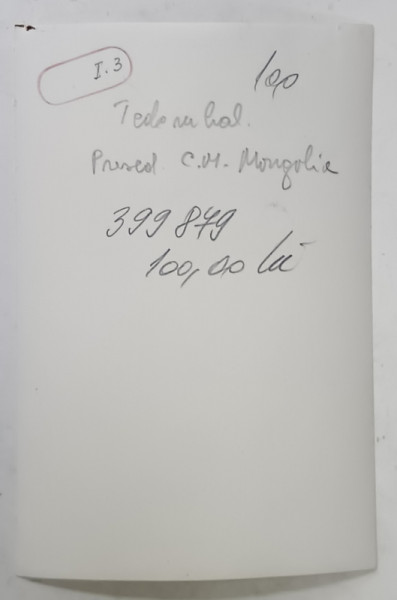 I.3
100
Tedenbal.
Presed C.M. Mongolia
399879
100,00 lei